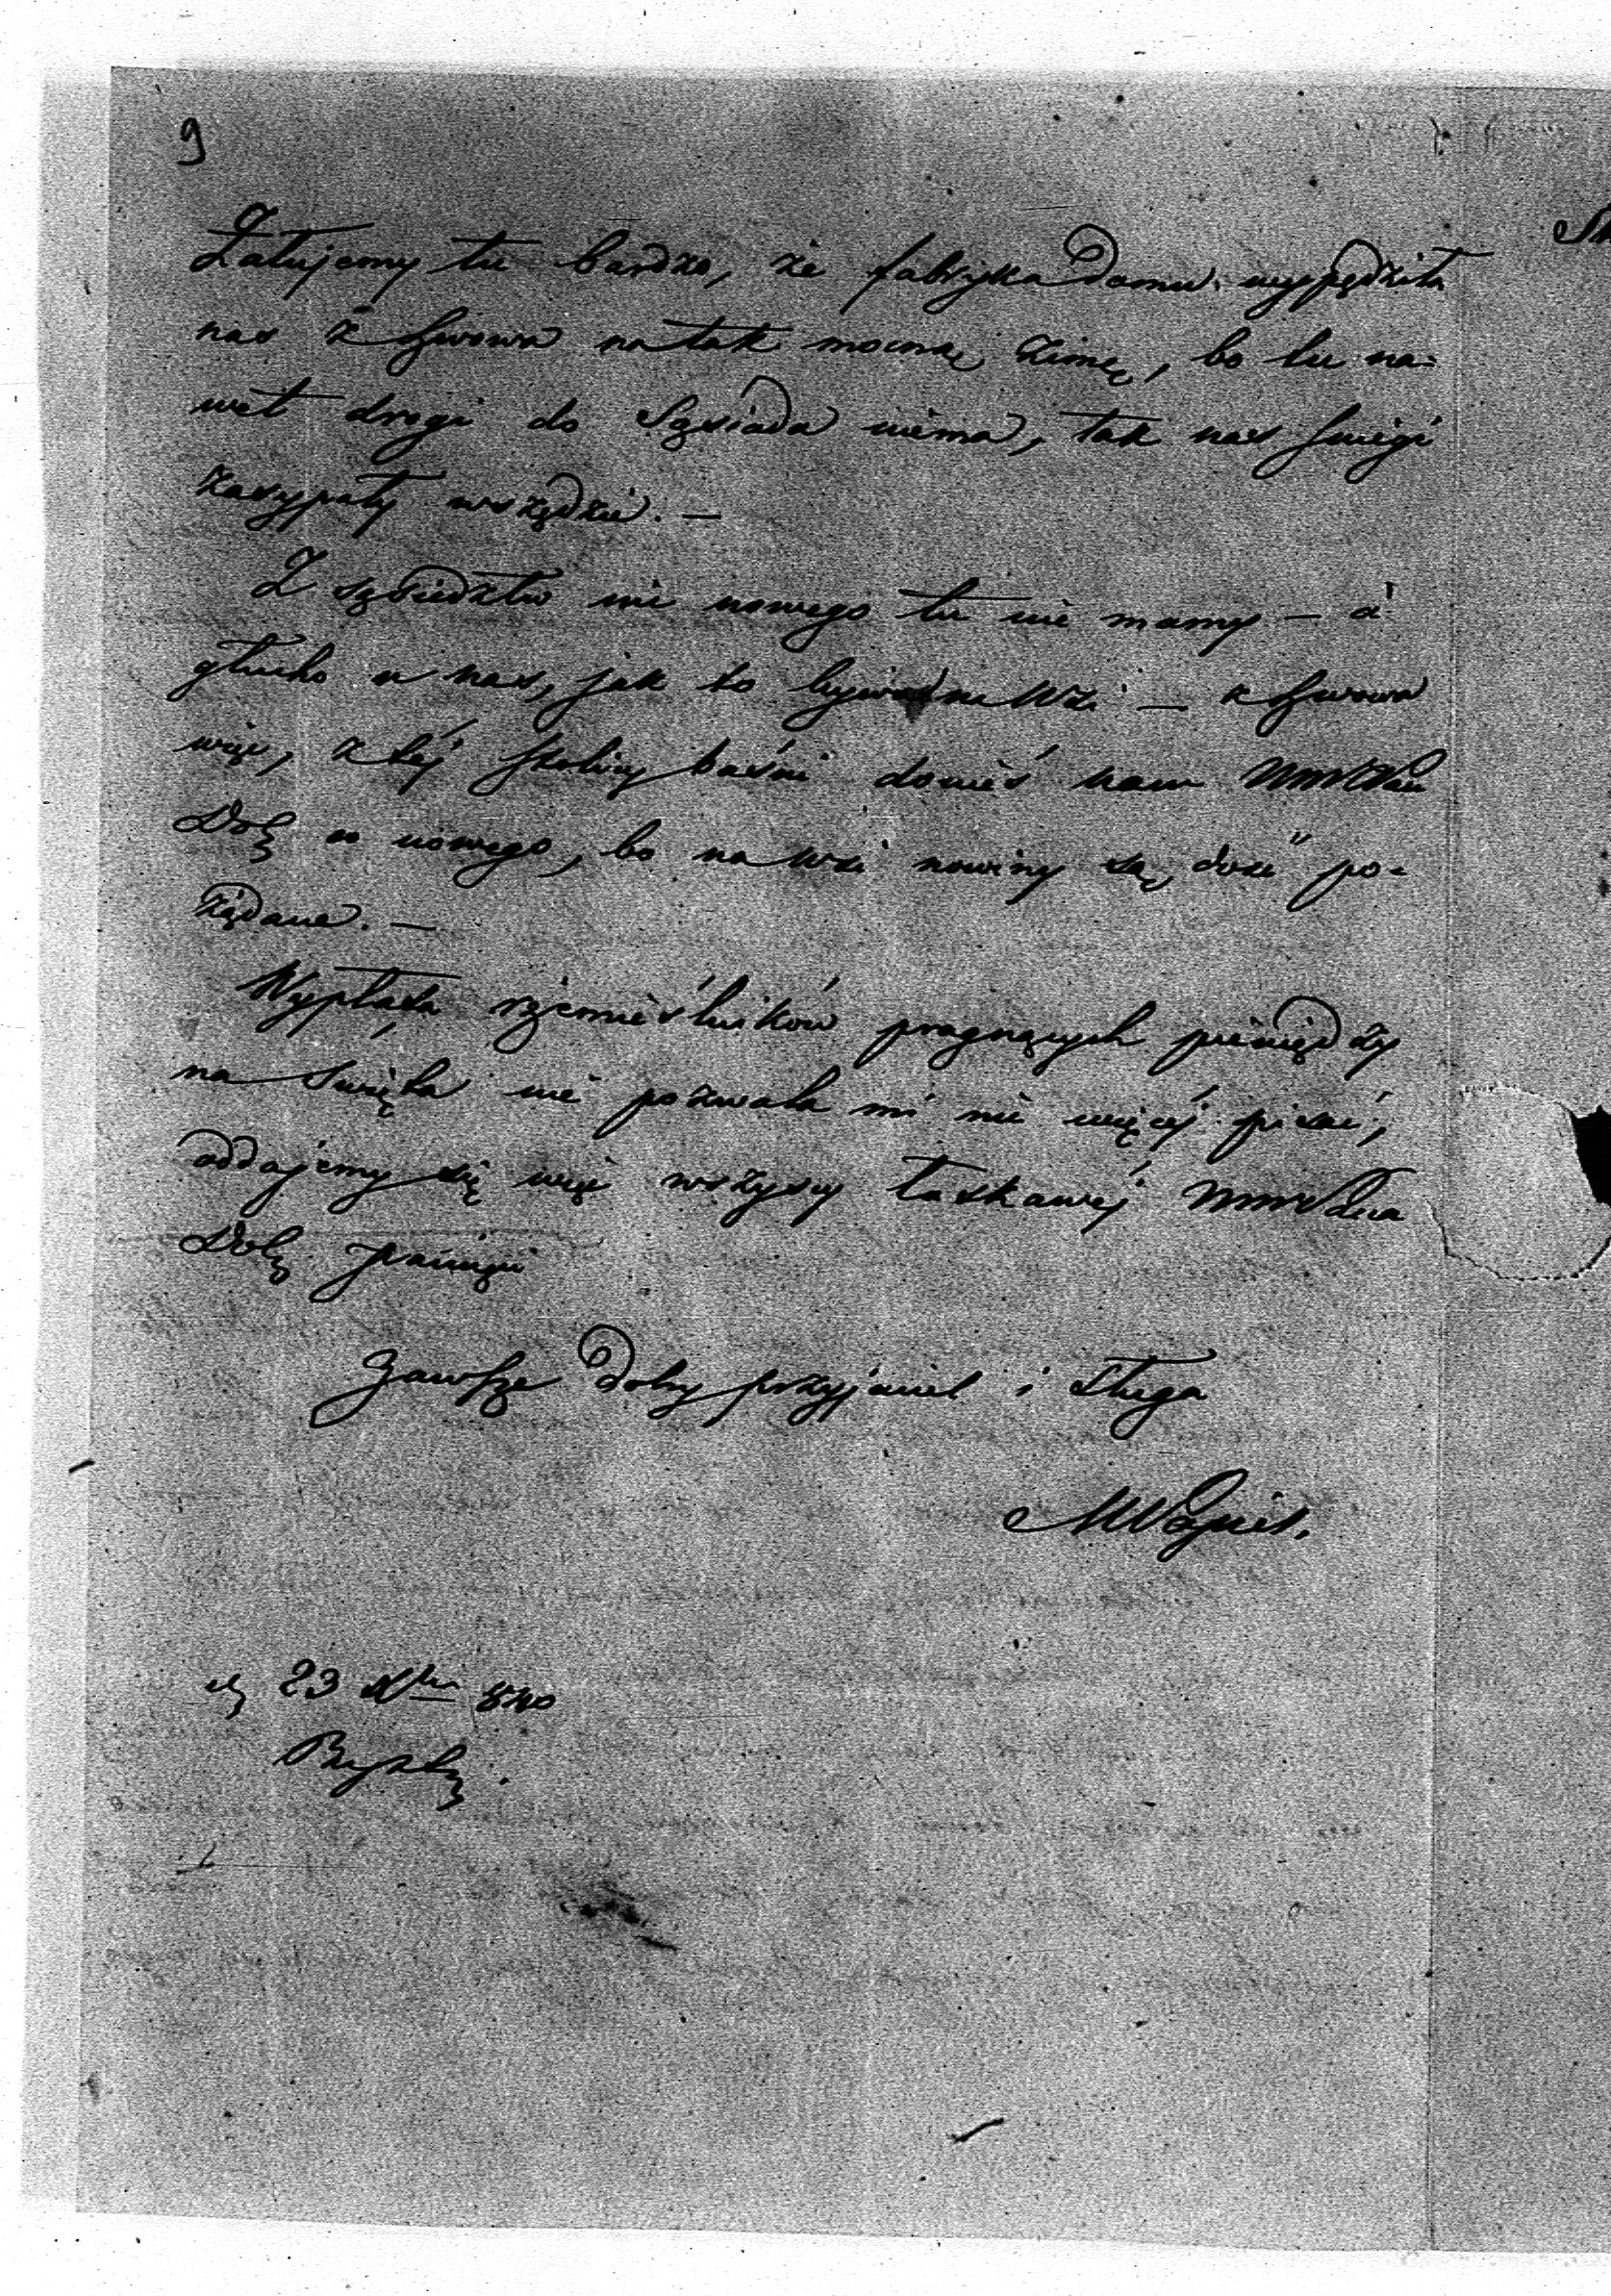 9
Żałujemy tu bardzo, że fabryka domu wypędziła
nas z Lwowa na tak mocną zimę, bo tu na-
wet drogi do Sąsiada niema, tak nas śniegi
zasypały wszędzie. —
Z sąsiedztw nic nowego tu nie mamy — a
głucho u nas, jak to bywa na Wsi — z Lwowa
więc, z téj stolicy baśni donieś nam WMWPan
Dob co nowego, bo na wsi nowiny są dość po-
żądane. —
Wypłata rzemieślników pragnących pieniędzy
na święta nie pozwala mi nic więcéj pisać,
oddajemy się więc wszyscy łaskawéj WMWPana
Dob pamięci
Zawsze dobry przyjaciel i sługa
d 23 Xbr 840